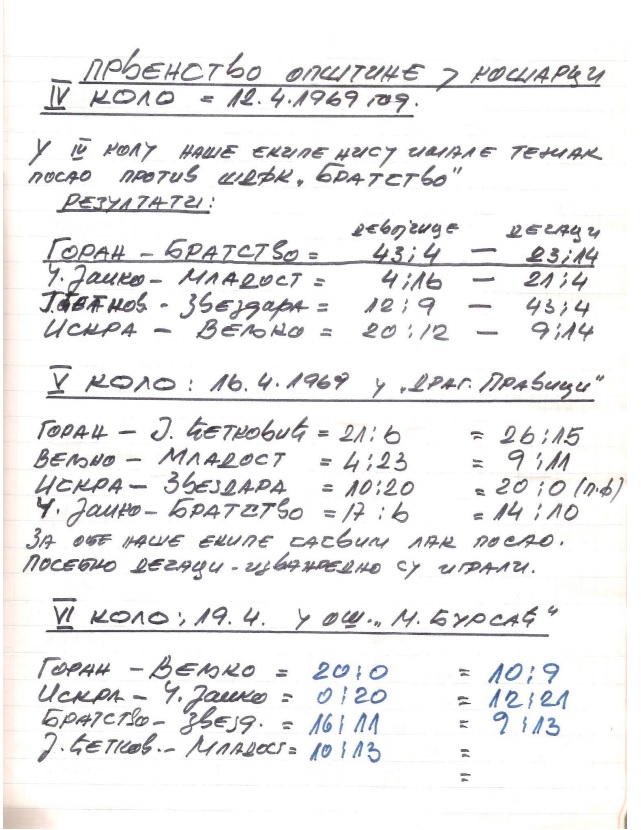 ПРВЕНСТВО ОПШТИНЕ У КОШАРЦИ
IV КОЛО = 12.4.1969 год.
У IV КОЛУ НАШЕ ЕКИПЕ НИСУ ИМАЛЕ ТЕЖАК
ПОСАО ПРОТИВ ШДФК „БРАТСТВО"
РЕЗУЛТАТИ:
ДЕВОЈЧИЦЕ ДЕЧАЦИ
ГОРАН – БРАТСТВО = 43:4 — 23:14
Ч. ЈАНКО – МЛАДОСТ = 4:16 — 21:4
ЗВЕЗДАРА = 12:9 — 43:4
ИСКРА – ВЕЉКО = 20:12 — 9:14
V КОЛО: 16.4.1969 У „ДРАГ. ПРАВИЦИ"
ГОРАН – Ј. ЋЕТКОВИЋ = 21:6 = 26:15
ВЕЉКО – МЛАДОСТ = 4:23 = 9:11
ИСКРА – ЗВЕЗДАРА = 10:20 = 20:0 (п.ф)
Ч. ЈАНКО – БРАТСТВО = 17:6 = 14:10
ЗА ОБЕ НАШЕ ЕКИПЕ САСВИМ ЛАК ПОСАО.
ПОСЕБНО ДЕЧАЦИ – ИЗВАНРЕДНО СУ ИГРАЛИ.
VI КОЛО: 19.4. У ОШ. „М. БУРСАЋ"
ГОРАН – ВЕЉКО = 20:0 = 10:9
ИСКРА – Ч. ЈАНКО = 0:20 = 12:21
БРАТСТВО – ЗВЕЗД. = 16:11 = 9:13
Ј. ЋЕТКОВ. – МЛАДОСТ = 10:13 =
=